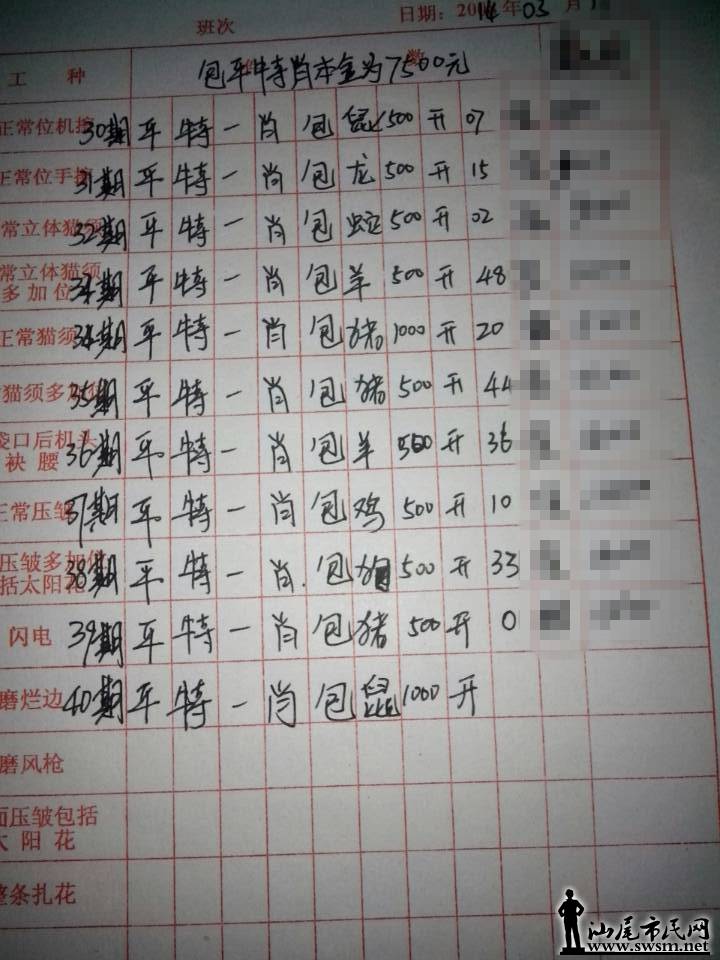 班次
日期: 2014年03月
工 种 包平特肖本金为7500元
正常位机 30期平特一肖包鼠500开07
正常位手 31期平特一肖包龙500开15
常立体猫须 32期平特一肖包蛇500开02
常立体猫须
多加位 期平特一肖包羊500开48
正常猫须 34期平特一肖包猪1000开20
猫须多 35期平特一肖包猪500开44
袋口后机头
袂腰 36期平特一肖包羊500开36
正常压皱 37期平特一肖包鸡500开10
压皱多加
括太阳花 38期平特一肖包狗500开33
闪电 39期平特一肖包猪500开0
磨烂边 40期平特一肖包鼠1000开
磨风枪
面压皱包括
太阳花
整条扎花
汕尾市民网
www.swsm.net